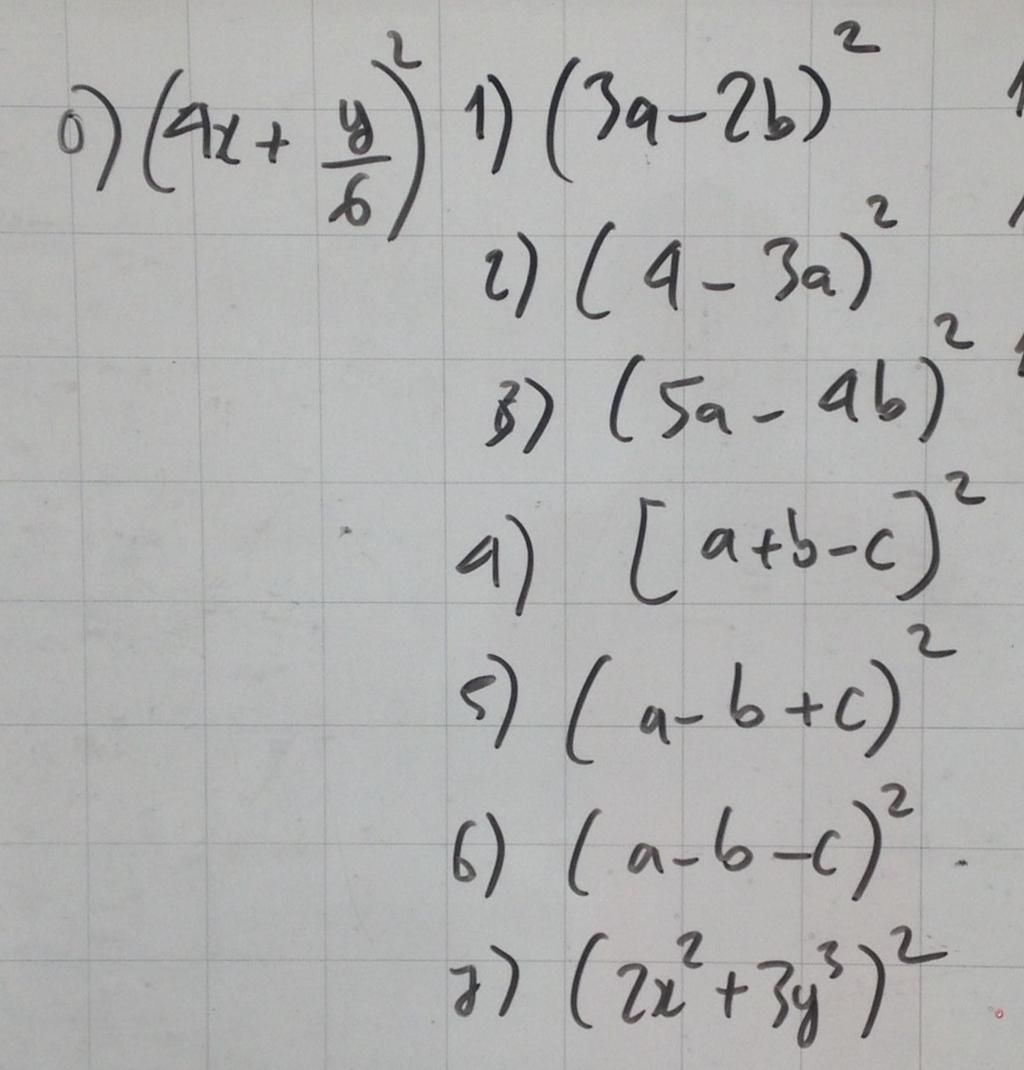 0) (4x + y/6)² 1) (3a - 2b)²
2) (4 - 3a)²
3) (5a - 4b)²
4) [a+b-c)²
5) (a - b + c)²
6) (a - b - c)²
7) (2x² + 3y³)²